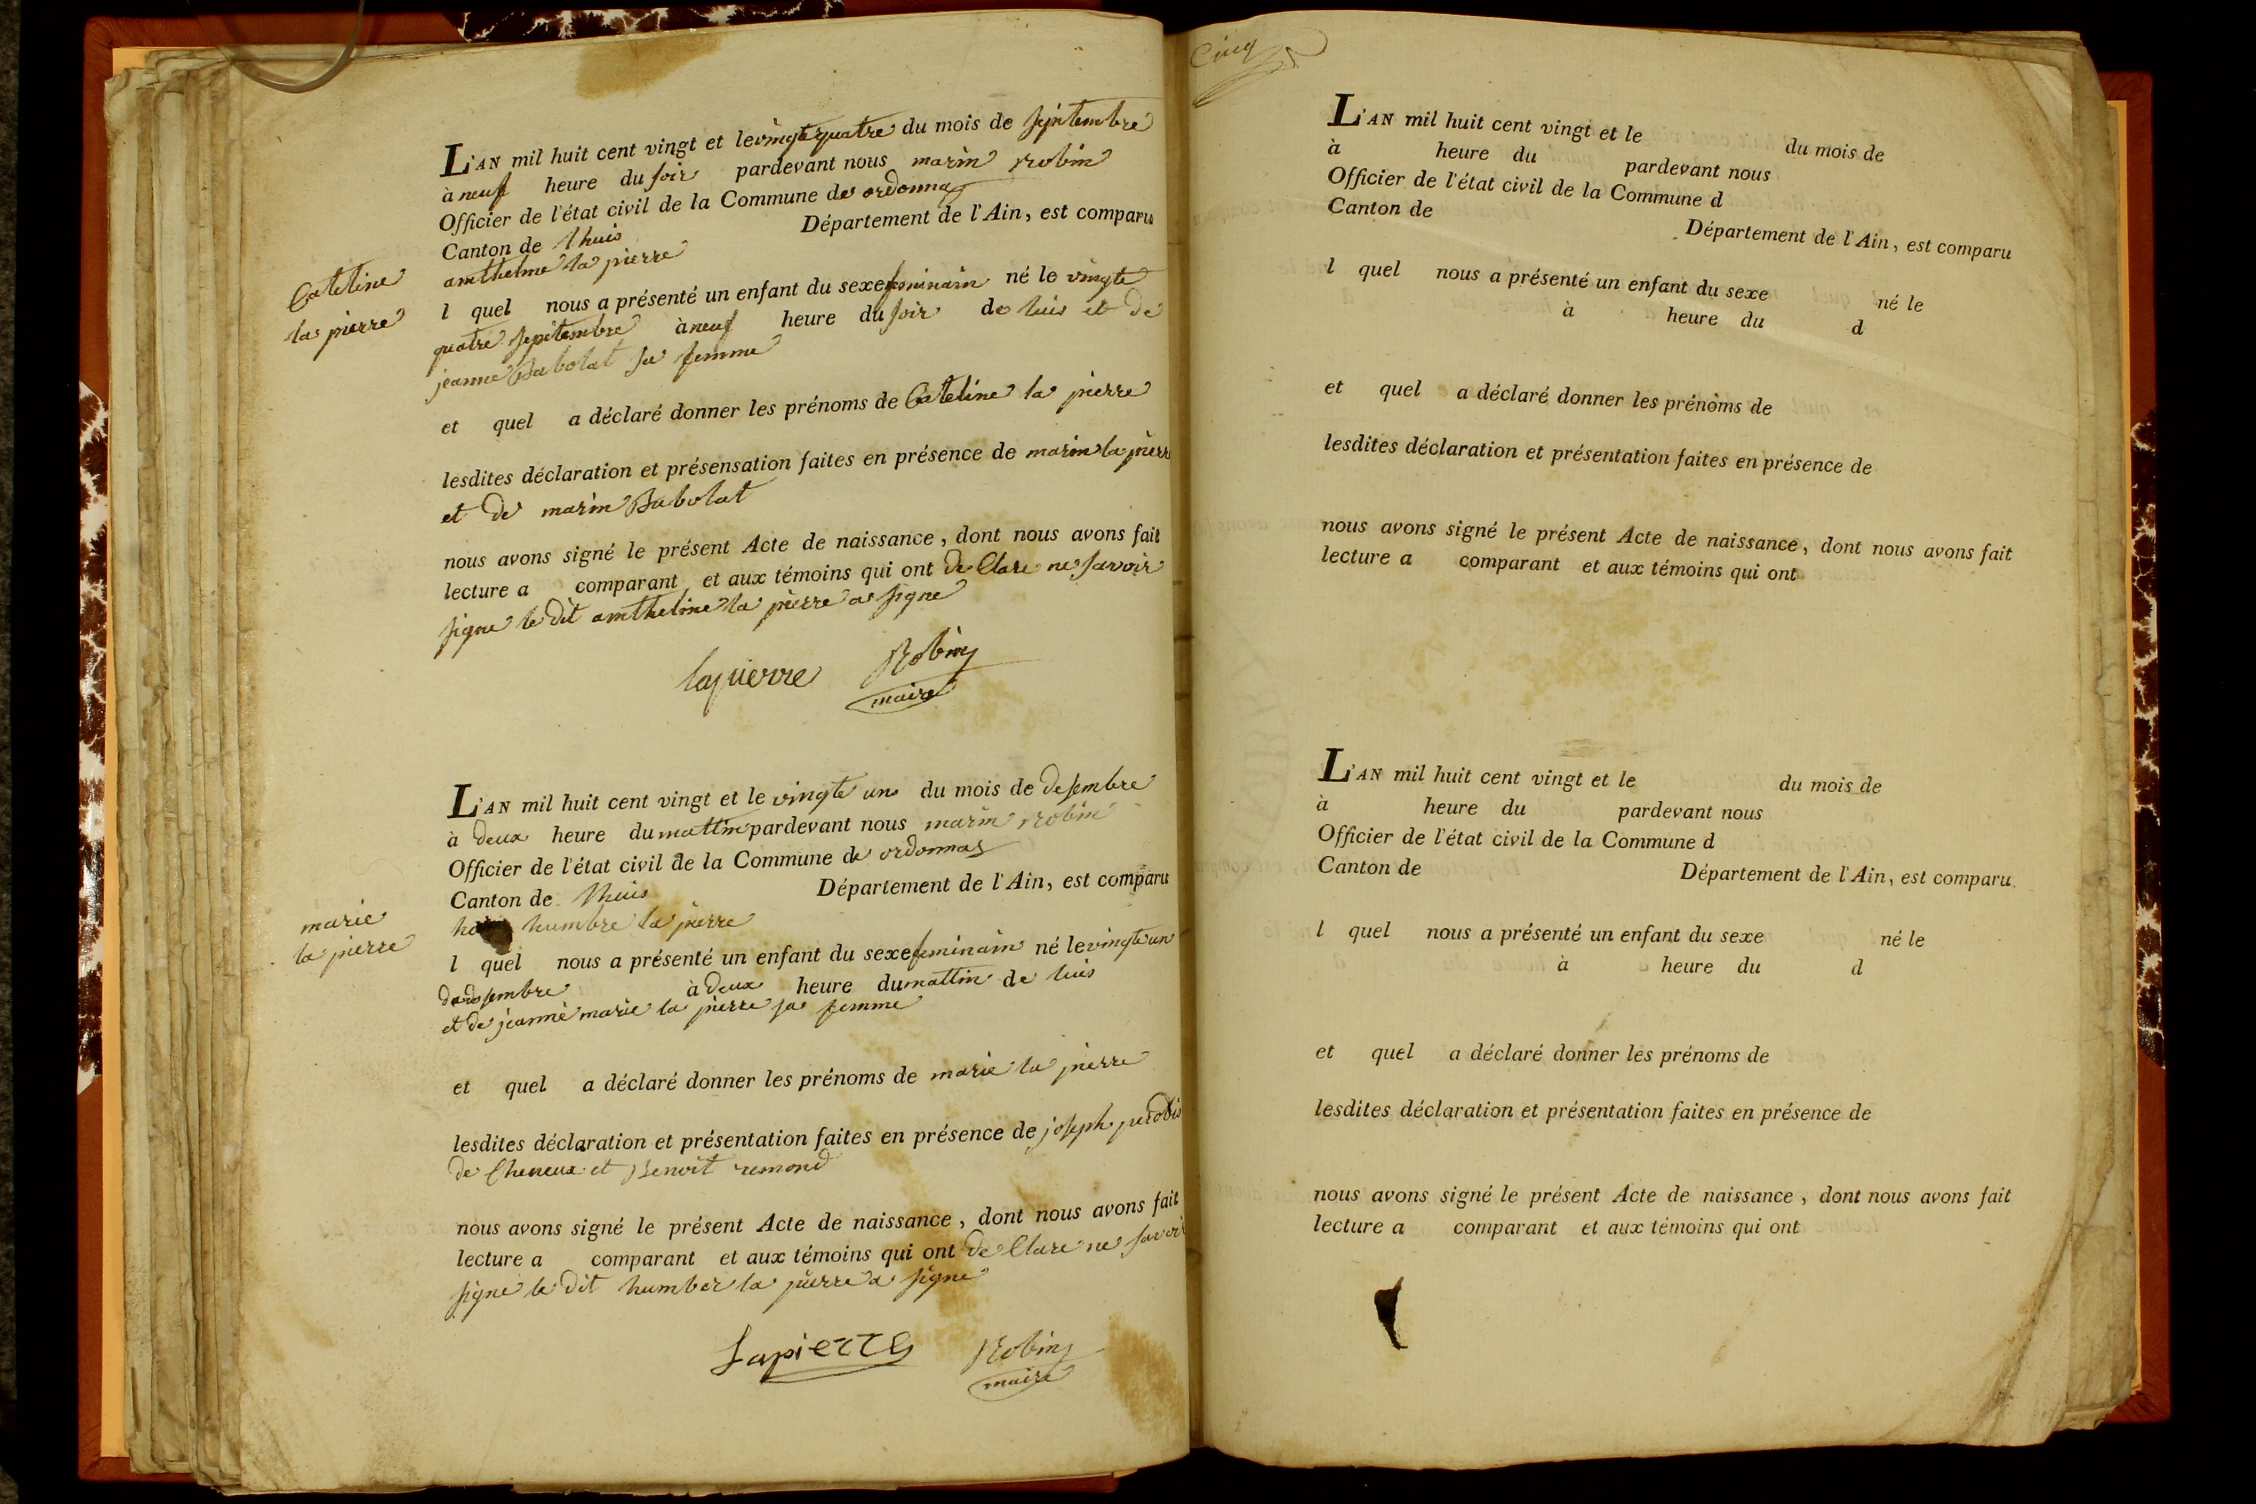 L'AN mil huit cent vingt et le vingte quatre du mois de septembre
à neuf heure du soir pardevant nous marin Robin
Officier de l'état civil de la Commune de ordonnas
Canton de lhuis Département de l'Ain, est comparu
anthelme la pierre
Cateline
la pierre
l quel nous a présenté un enfant du sexe feminain né le vingte
quatre septembre à neuf heure du soir de luis et de
jeanne Babolat sa femme
et quel a déclaré donner les prénoms de Cateline la pierre
lesdites déclaration et présensation faites en présence de marin la pierre
et de marin Babolat
nous avons signé le présent Acte de naissance, dont nous avons fait
lecture a comparant et aux témoins qui ont de Clare ne savoir
signe le dit anthelme la pierre a signe
lapierre Robin
maire
L'AN mil huit cent vingt et le vingte un du mois de desembre
à deux heure du mattin pardevant nous marin Robin
Officier de l'état civil de la Commune de ordonnas
Canton de lhuis Département de l'Ain, est comparu
humbre la pierre
marie
la pierre
l quel nous a présenté un enfant du sexe feminain né le vingte un
desembre à deux heure du mattin de luis
et de jeanne marie la pierre sa femme
et quel a déclaré donner les prénoms de marie la pierre
lesdites déclaration et présentation faites en présence de joseph
de Cheneux et Benoit remond
nous avons signé le présent Acte de naissance, dont nous avons fait
lecture a comparant et aux témoins qui ont de Clare ne savoir
signe le dit humber la pierre a signe
Lapierre Robin
maire
Cinq
L'AN mil huit cent vingt et le du mois de
à heure du pardevant nous
Officier de l'état civil de la Commune d
Canton de Département de l'Ain, est comparu
l quel nous a présenté un enfant du sexe né le
à heure du d
et quel a déclaré donner les prénoms de
lesdites déclaration et présentation faites en présence de
nous avons signé le présent Acte de naissance, dont nous avons fait
lecture a comparant et aux témoins qui ont
L'AN mil huit cent vingt et le du mois de
à heure du pardevant nous
Officier de l'état civil de la Commune d
Canton de Département de l'Ain, est comparu
l quel nous a présenté un enfant du sexe né le
à heure du d
et quel a déclaré donner les prénoms de
lesdites déclaration et présentation faites en présence de
nous avons signé le présent Acte de naissance, dont nous avons fait
lecture a comparant et aux témoins qui ont